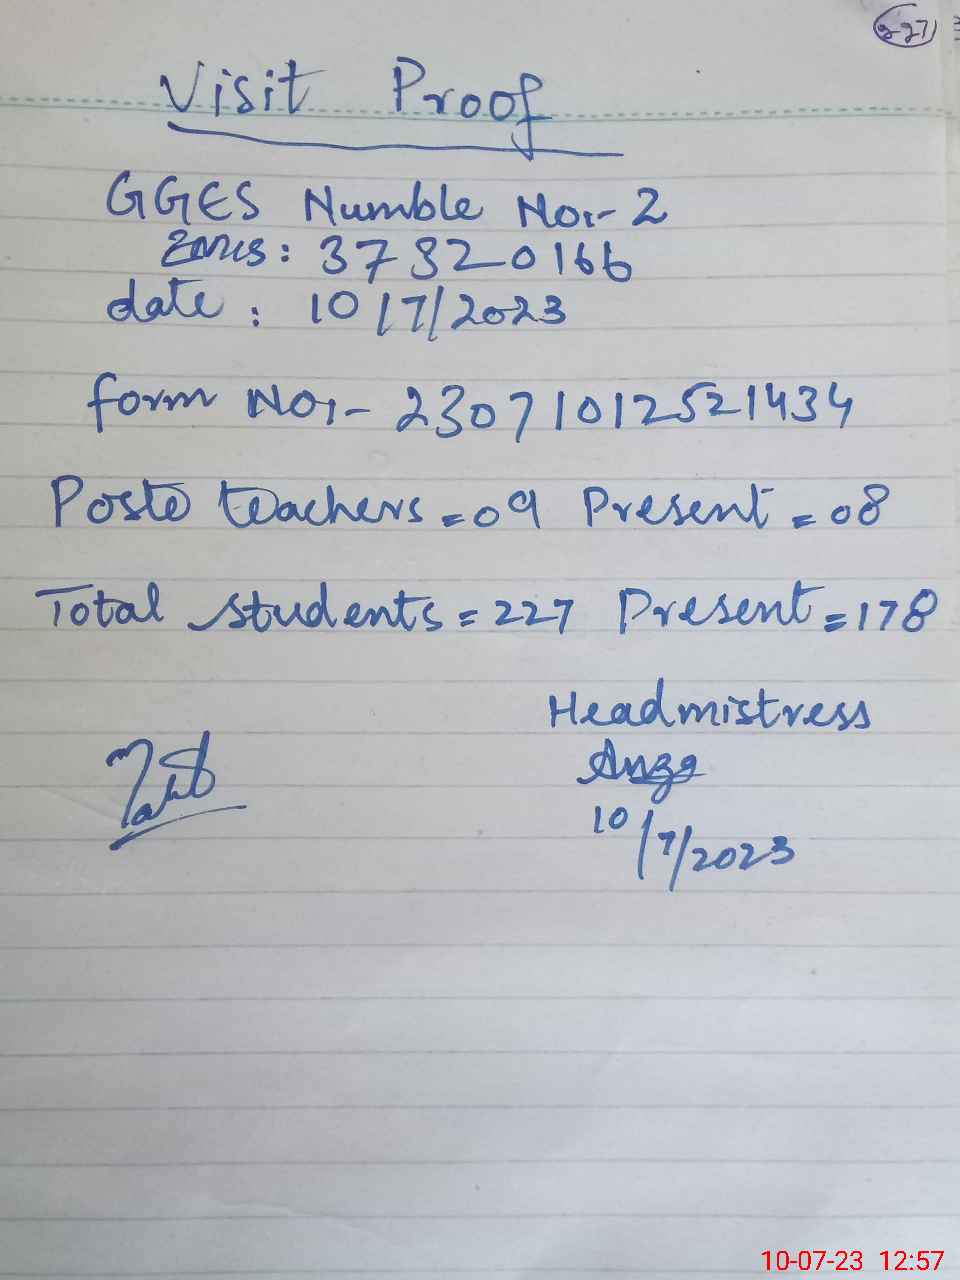 227
Visit Proof
GGES Numble No:- 2
EMIS: 37320166
date: 10/7/2023
form No:- 23071012521434
Posto teachers = 09 Present = 08
Total students = 227 Present = 178
Headmistress
10/7/2023
10-07-23 12:57